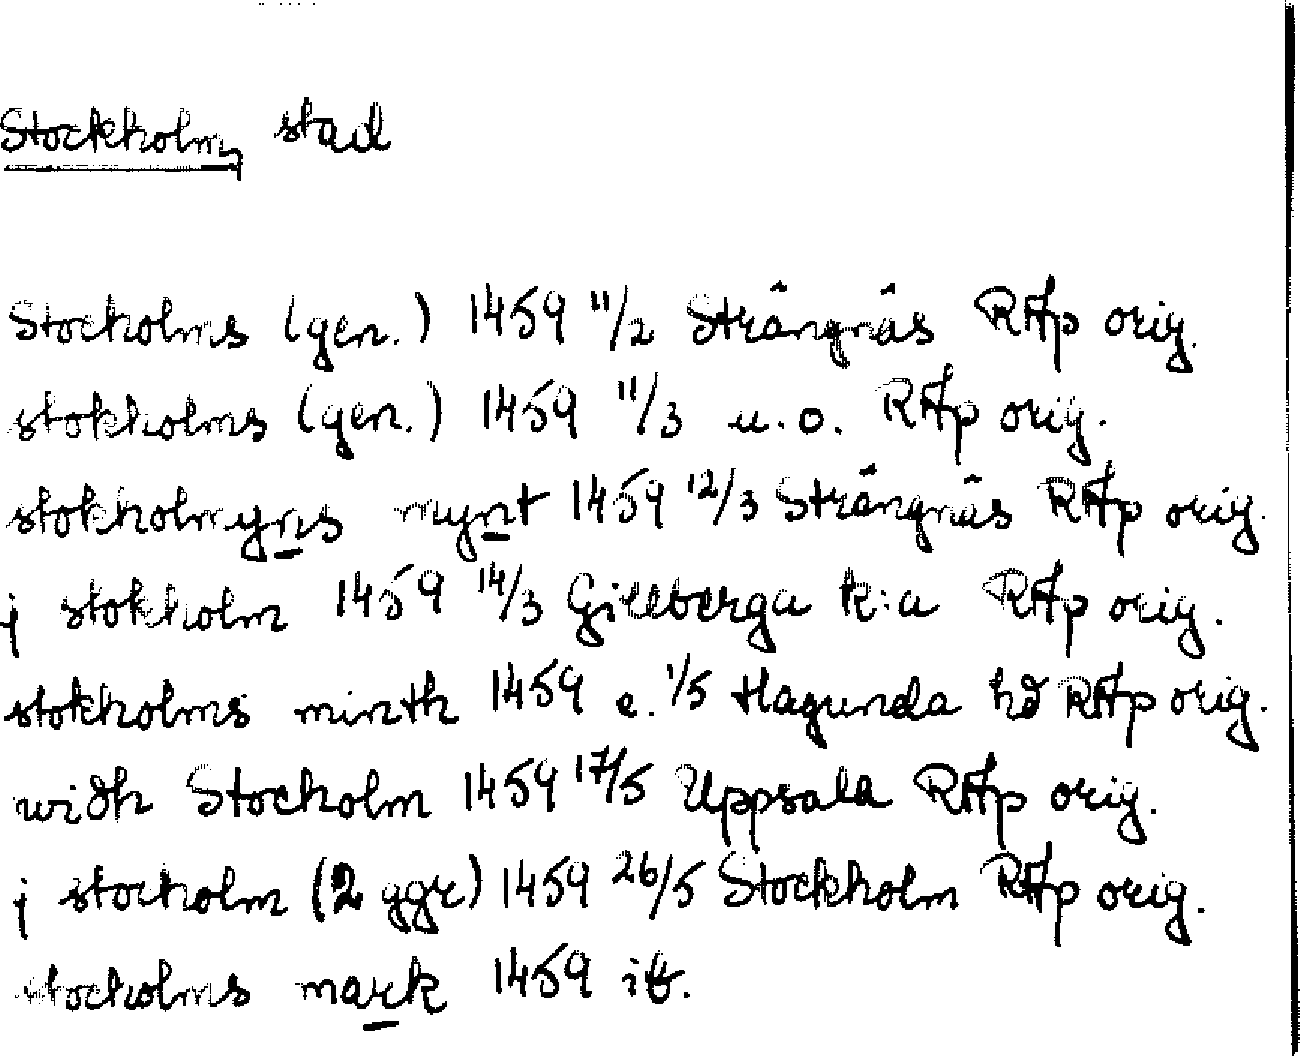 Stockholm, stad
Stocholms (gen.) 1459 11/2 Strängnäs RAp orig.
stokholms (gen.) 1459 11/3 u.o. RAp orig.
stokholmyns mynt 1459 12/3 Strängnäs RAp orig.
j stokholm 1459 14/3 Gillberga k:a RAp orig.
stokholms minth 1459 e. 1/5 Hagunda hd RAp orig.
widh Stocholm 1459 17/5 Uppsala RAp orig.
j stocholm (2 ggr) 1459 26/5 Stockholm RAp orig.
stocholms mark 1459 ib.